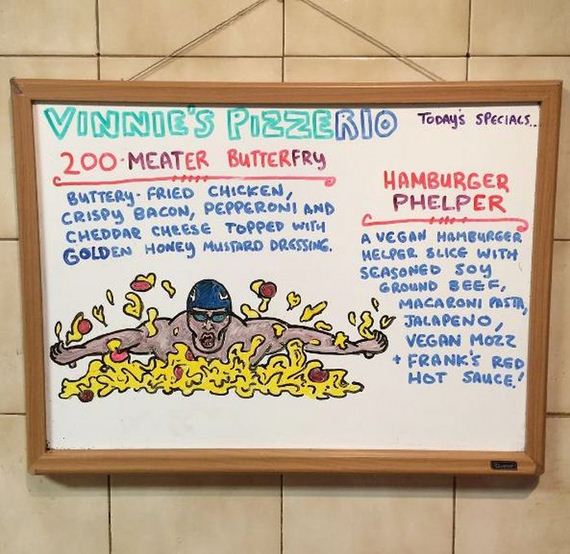 VINNIE'S PIZZERIO
TODAY'S SPECIALS..
200·MEATER BUTTERFRY
BUTTERY-FRIED CHICKEN,
CRISPY BACON, PEPPERONI AND
CHEDDAR CHEESE TOPPED WITH
GOLDEN HONEY MUSTARD DRESSING.
HAMBURGER
PHELPER
A VEGAN HAMBURGER
HELPER SLICE WITH
SEASONED SOY
GROUND BEEF,
MACARONI PASTA,
JALAPENO,
VEGAN MOZZ
+ FRANK'S RED
HOT SAUCE!